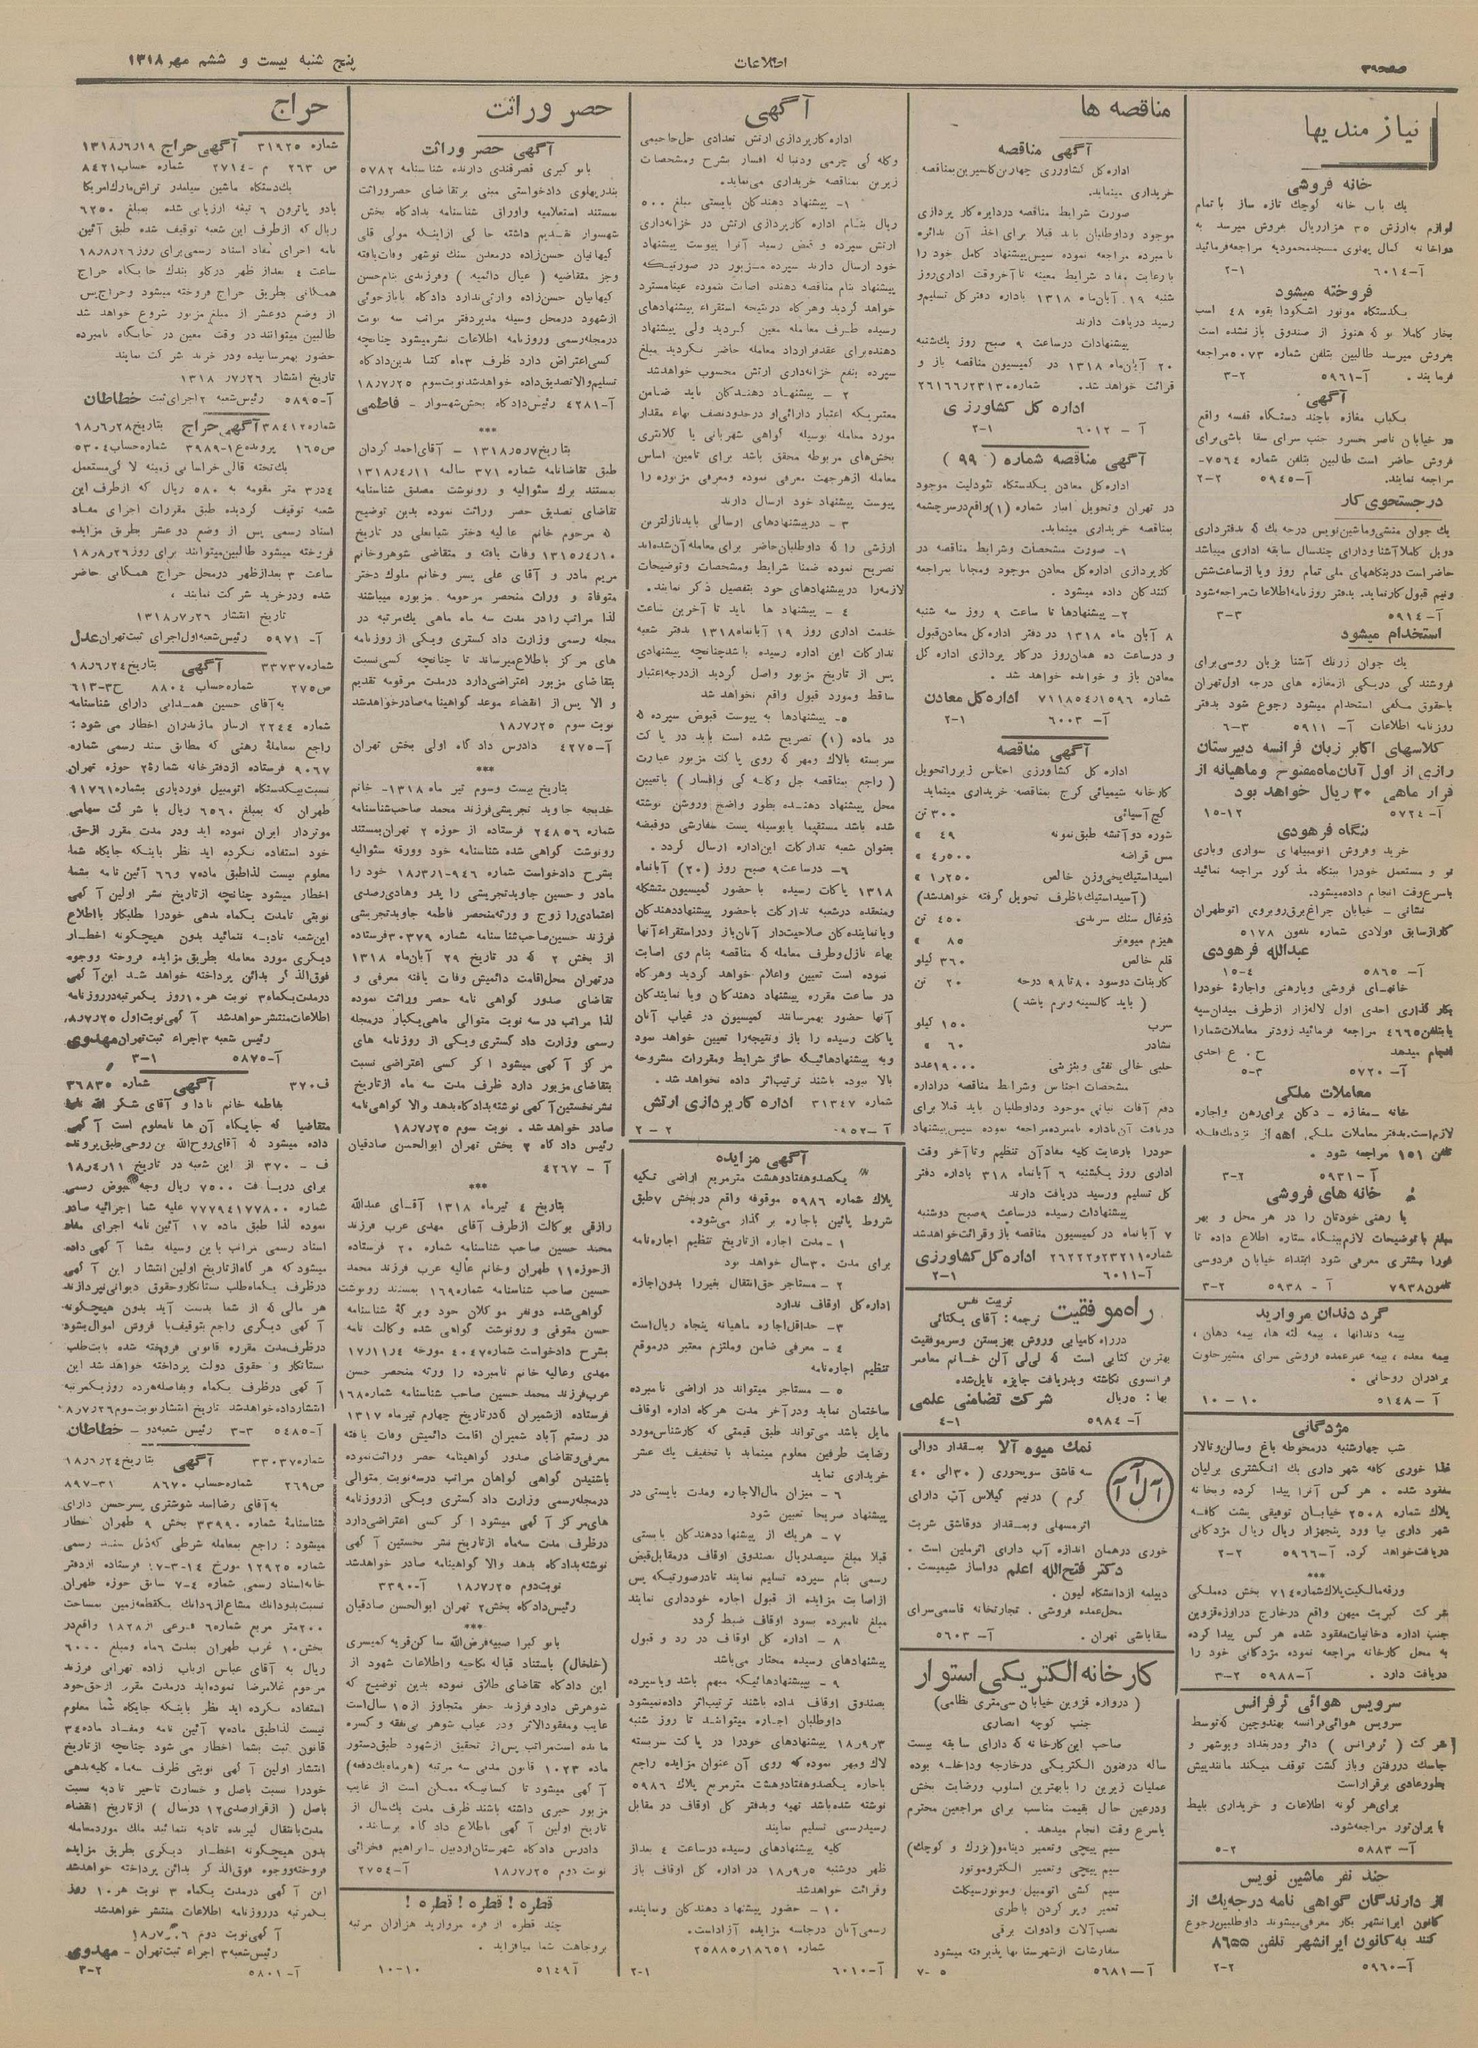 صفحه ۳۹
اطلاعات
پنج شنبه بیست و ششم مهر ۱۳۱۸
نیازمندیها
خانه فروشی
یك باب خانه كوچك تازه ساز با تمام
لوازم به ارزش ۳۵ هزار ریال بفروش میرسد به
دواخانه كمال پهلوی مسجد محمودیه مراجعه فرمائید
آ-۶۰۱۴ ۱-۲
فروخته میشود
یكدستگاه موتور اشكودا بقوه ۴۸ اسب
بخار كاملا نو كه هنوز از صندوق باز نشده است
بفروش میرسد طالبین بتلفن شماره ۵۰۷۳ مراجعه
فرمایند . آ-۵۹۶۱ ۲-۳
آگهی
یكباب مغازه با چند دستگاه قفسه واقع
در خیابان ناصر خسرو جنب سرای سقا باشی برای
فروش حاضر است طالبین بتلفن شماره ۷۵۶۴-
مراجعه نمایند. آ-۵۹۴۵ ۲-۲
در جستجوی كار
یك جوان منشی و ماشین نویس درجه یك كه بدفترداری
دوبل كاملا آشنا و دارای چند سال سابقه اداری میباشد
حاضر است در بنگاههای ملی تمام روز و یا از ساعت شش
ونیم قبول كار نماید. بدفتر روزنامه اطلاعات مراجعه شود
آ-۵۹۱۴ ۳-۳
استخدام میشود
یك جوان زرنك آشنا بزبان روسی برای
فروشند كی در یكی از مغازه های درجه اول تهران
با حقوق مكفی استخدام میشود رجوع شود بدفتر
روزنامه اطلاعات آ- ۵۹۱۱ ۳-۶
كلاسهای اكابر زبان فرانسه دبیرستان
رازی از اول آبان ماه مفتوح و ماهیانه از
قرار ماهی ۳۰ ریال خواهد بود
آ-۵۷۲۴ ۱۲-۱۵
بنگاه فرهودی
خرید و فروش اتومبیلهای سواری و باری
نو و مستعمل خود را ببنگاه مذ كور مراجعه نمائید
با سرع وقت انجام داده میشود.
نشانی - خیابان چراغ برق روبروی اتو طهران
كاراژ سابق فولادی شماره تلفون ۵۱۷۸
عبدالله فرهودی
آ- ۵۸۶۵ ۴-۱۵
معاملات ملكی
خانه - مغازه - دكان برای رهن و اجاره
تلفن ۱۵۱ مراجعه شود .
آ-۵۹۳۱ ۲-۳
خانه های فروشی
یا رهنی خودتان را در هر محل و بهر
مبلغ با توضیحات لازم ببنگاه ستاره اطلاع داده تا
فورا مشتری معرفی شود ابتداء خیابان فردوسی
تلفون ۷۹۳۸ آ - ۵۹۳۸ ۲-۳
گرد دندان مروارید
بیمه دندانها ، بیمه لثه ها، بیمه دهان ،
بیمه معده ، بیمه عمر عمده فروشی سرای مشیر خلوت
برادران روحانی .
آ - ۵۱۴۸ ۱۰-۱۰
مژدگانی
شب چهارشنبه در محوطه باغ و سالن و تالار
غذا خوری كافه شهرداری یك انگشتری برلیان
مفقود شده . هر كس آنرا پیدا كرده و بخانه
پلاك شماره ۲۵۰۸ خیابان توفیقی پشت كافه
شهر داری بیا ورد پنجهزار ریال ریال مژدكانی
دریافت خواهد كرد. آ-۵۹۶۶ ۲-۲
***
ورقه مالكیت پلاك شماره ۷۱۴ بخش ده ملكی
شركت كبریت میهن واقع در خارج دروازه قزوین
جنب اداره دخانیات مفقود شده هر كس پیدا كرده
به محل كارخانه مراجعه نموده مژدگانی خود را
دریافت دارد . آ-۵۹۸۸ ۲-۳
سرویس هوائی ئرفرانس
سرویس هوائی فرانسه بهندوچین كه توسط
شركت ( ئرفرانس ) دائر و در بغداد و بوشهر و
جاسك در رفتن و باز گشت توقف میكند مانند پیش
بطور عادی برقرار است
برای هر گونه اطلاعات و خریداری بلیط
با ایران تور مراجعه شود.
آ-۵۸۸۳ ۲-۵
چند نفر ماشین نویس
از دارندگان گواهی نامه درجه یك از
كانون ایرانشهر بكار معرفی میشوند داوطلبین رجوع
كنند به كانون ایرانشهر تلفن ۸۶۵۵
آ-۵۹۶۰ ۲-۲
مناقصه ها
آگهی مناقصه
اداره كل كشاورزی
خریداری مینماید.
صورت شرایط مناقصه در دایره كار پردازی
موجود و داوطلبان باید قبلا برای اخذ آن بدائره
نامبرده مراجعه نموده سپس پیشنهاد كامل خود را
با رعایت مفاد شرایط معینه تا آخر وقت اداری روز
شنبه ۱۹ آبان ماه ۱۳۱۸ باداره دفتر كل تسلیم و
رسید دریافت دارند
پیشنهادات در ساعت ۹ صبح روز یك شنبه
۲۰ آبان ماه ۱۳۱۸ در كمیسیون مناقصه باز و
قرائت خواهد شد. شماره ۲۶۱۶۶/۲۳۱۳۰
اداره كل كشاورزی
آ - ۶۰۱۲ ۱-۲
آگهی مناقصه شماره ( ۹۹ )
اداره كل معادن یكدستگاه تئودلیت موجود
در تهران و تحویل انبار شماره (۱) واقع در سرچشمه
بمناقصه خریداری مینماید.
۱- صورت مشخصات و شرایط مناقصه در
كارپردازی اداره كل معادن موجود و مجانا بمراجعه
كنندكان داده میشود.
۲- پیشنهادها تا ساعت ۹ روز سه شنبه
۸ آبان ماه ۱۳۱۸ در دفتر اداره كل معادن قبول
و در ساعت ده همان روز در كار پردازی اداره كل
معادن باز و خوانده خواهد شد .
شماره ۷۱۱۸۵۴/۱۵۹۶ اداره كل معادن
آ- ۶۰۰۳ ۱-۲
آگهی مناقصه
اداره كل كشاورزی اجناس زیر را تحویل
كارخانه شیمیائی كرج بمناقصه خریداری مینماید
گچ آسیائی ۳۰۰ تن
شوره دو آتشه طبق نمونه ۴۹ »
مس قراضه ۴٫۵۰۰ »
اسید استیك یخی وزن خالص ۱٫۲۵۰ »
(آسید استیك با ظرف تحویل گرفته خواهد شد)
ذوغال سنك سرندی ۴۵۰ تن
هیزم میوه تر ۸۵ »
قلع خالص ۳۶۰ كیلو
كاربنات دوسود ۸۰ تا ۹۸ درجه ۲۰ تن
( باید كالسینه و نرم باشد )
سرب ۱۵۰ كیلو
نشادر ۶۰ »
حلبی خالی نفتی و بنزینی ۱۹۰۰۰ عدد
مشخصات اجناس و شرایط مناقصه در اداره
دفع آفات نباتی موجود و داوطلبان باید قبلا برای
دریافت آن باداره نامبرده مراجعه نموده سپس پیشنهاد
خود را با رعایت كلیه مفاد آن تنظیم و تا آخر وقت
اداری روز یكشنبه ۶ آبانماه ۳۱۸ باداره دفتر
كل تسلیم و رسید دریافت دارند
پیشنهادات رسیده در ساعت ۹ صبح دوشنبه
۷ آبانماه در كمیسیون مناقصه باز و قرائت خواهد شد
شماره ۲۶۲۲۲/۲۳۲۱۱ اداره كل كشاورزی
آ-۶۰۱۱ ۱-۲
راه موفقیت
تربیت نفس
ترجمه : آقای یكتائی
در راه كامیابی و روش بهزیستن و سر موفقیت
بهترین كتابی است كه لی لی آلن خانم معاصر
فرانسوی نگاشته و بدریافت جایزه نایل شده
بها : ۵ ریال شركت تضامنی علمی
آ- ۵۹۸۴ ۱-۴
نمك میوه آلا بمقدار دوالی
آلآ
سه قاشق سوپخوری ( ۳۰ الی ۴۰
گرم ) در نیم گیلاس آب دارای
اثر مسهلی و بمقدار دو قاشق شربت
خوری در همان اندازه آب دارای اثر ملین است .
دكتر فتح الله اعلم دواساز شیمیست .
دیپلمه از دانشگاه لیون .
محل عمده فروشی . تجارتخانه قاسمی سرای
سقاباشی تهران . آ- ۵۶۰۳
كارخانه الكتریكی استوار
( دروازه قزوین خیابان سی متری نظامی )
جنب كوچه انصاری
صاحب این كارخانه كه دارای سابقه بیست
ساله در فنون الكتریكی در خارجه و داخله بوده
عملیات زیرین را با بهترین اسلوب و رضایت بخش
و در عین حال بقیمت مناسب برای مراجعین محترم
با سرع وقت انجام میدهد .
سیم پیچی و تعمیر دینامو (بزرك و كوچك)
سیم پیچی و تعمیر الكتروموتور
سیم كشی اتومبیل و موتورسیكلت
تعمیر و پر كردن باطری
نصب آلات و ادوات برقی
سفارشات از شهرستانها پذیرفته میشود
آ-۵۶۸۱ ۵-۷
آگهی
اداره كارپردازی ارتش تعدادی جل حاجیمی
وكله كی چرمی و دنباله افسار بشرح و مشخصات
زیرین بمناقصه خریداری می‌نماید.
۱- پیشنهاد دهندكان بایستی مبلغ ۵۰۰
ریال بنام اداره كارپردازی ارتش در خزانه داری
ارتش سپرده و قبض رسید آنرا بپیوست پیشنهاد
خود ارسال دارند سپرده مزبور در صورتیكه
پیشنهاد بنام مناقصه دهنده اصابت ننموده عینا مسترد
خواهد گردید و هر گاه در نتیجه استقراء پیشنهادهای
رسیده طرف معامله معین گردید ولی پیشنهاد
دهنده برای عقد قرارداد معامله حاضر نگردید مبلغ
سپرده بنفع خزانه داری ارتش محسوب خواهد شد
۲ - پیشنهاد دهندكان باید ضامن
معتبریكه اعتبار دارائی او در حدود نصف بهاء مقدار
مورد معامله بوسیله گواهی شهربانی یا كلانتری
بخش های مربوطه محقق باشد برای تامین اساس
معامله از هر جهت معرفی نموده و معرفی مزبوره را
پیوست پیشنهاد خود ارسال دارند
۳ - در پیشنهادهای ارسالی باید نازلترین
ارزشی را كه داوطلبان حاضر برای معامله آن شده اند
تصریح نموده ضمنا شرایط و مشخصات و توضیحات
لازمه را در پیشنهادهای خود بتفصیل ذكر نمایند.
۴ - پیشنهاد ها باید تا آخرین ساعت
خدمت اداری روز ۱۹ آبانماه ۱۳۱۸ بدفتر شعبه
تداركات این اداره رسیده باشد چنانچه پیشنهادی
پس از تاریخ مزبور واصل گردید از درجه اعتبار
ساقط و مورد قبول واقع نخواهد شد
۵- پیشنهادها به پیوست قبوض سپرده كه
در ماده (۱) تصریح شده است باید در پاكت
سربسته بالاك و مهر كه روی پاكت مزبور عبارت
( راجع بمناقصه جل و كله كی و افسار ) با تعیین
محل پیشنهاد دهنده بطور واضح و روشن نوشته
شده باشد مستقیما یا بوسیله پست سفارشی دو قبضه
بعنوان شعبه تداركات این اداره ارسال گردد .
۶- در ساعت ۹ صبح روز (۲۰) آبانماه
۱۳۱۸ پاكات رسیده با حضور كمیسیون متشكله
و منعقده در شعبه تداركات با حضور پیشنهاد دهندكان
و یا نماینده كان صلاحیت دار آنان باز و در استقراء آنها
بهاء نازل و طرف معامله كه مناقصه بنام وی اصابت
نموده است تعیین و اعلام خواهد گردید و هر گاه
در ساعت مقرره پیشنهاد دهندكان و یا نمایندگان
آنها حضور بهمرسانند كمیسیون در غیاب آنان
پاكات رسیده را باز و نتیجه را تعیین خواهد نمود
و به پیشنهادهائیكه حائز شرایط و مقررات مشروحه
بالا نبوده باشند ترتیب اثر داده نخواهد شد .
شماره ۳۱۳۴۷ اداره كارپردازی ارتش
آ-۵۹۵۲ ۲-۲
آگهی مزایده
یكصد و هفتاد و هشت متر مربع اراضی تكیه
پلاك شماره ۵۹۸۶ موقوفه واقع در بخش ۷ طبق
شروط پائین باجاره بر گذار می‌شود.
۱- مدت اجاره از تاریخ تنظیم اجاره نامه
برای مدت ۳۰ سال خواهد بود
۲ - مستاجر حق انتقال بغیر را بدون اجازه
اداره كل اوقاف ندارد
۳- حداقل اجاره ماهیانه پنجاه ریال است
۴ - معرفی ضامن و ملتزم معتبر در موقع
تنظیم اجاره نامه
۵ - مستاجر میتواند در اراضی نامبرده
ساختمان نماید و در آخر مدت هر گاه اداره اوقاف
مایل باشد می‌تواند طبق قیمتی كه كارشناس مورد
رضایت طرفین معلوم مینماید با تخفیف یك عشر
خریداری نماید
۶ - میزان مال الاجاره و مدت بایستی در
پیشنهاد صریحا تعیین شود
۷ - هریك از پیشنهاد دهندكان بایستی
قبلا مبلغ سیصد ریال بصندوق اوقاف در مقابل قبض
رسمی بنام سپرده تسلیم نمایند تا در صورتیكه پس
از اصابت مزایده از قبول اجاره خودداری نمایند
مبلغ نامبرده بسود اوقاف ضبط گردد
۸ - اداره كل اوقاف در رد و قبول
پیشنهادهای رسیده مختار می‌باشد
۹ - پیشنهادهائیكه مبهم باشد و یا سپرده
بصندوق اوقاف نداده باشند ترتیب اثر داده نمیشود
داوطلبان اجاره میتوانند تا روز شنبه
۱۸/۹/۳ پیشنهادهای خود را در پاكت سربسته
لاك و مهر نموده كه روی آن عنوان مزایده راجع
باجاره یكصد و هفتاد و هشت متر مربع پلاك ۵۹۸۶
نوشته شده باشد تهیه و بدفتر كل اوقاف در مقابل
رسید رسمی تسلیم نمایند
كلیه پیشنهادهای رسیده در ساعت ۴ بعد از
ظهر دوشنبه ۱۸/۹/۵ در اداره كل اوقاف باز
و قرائت خواهد شد
۱۰ - حضور پیشنهاد دهندكان و نماینده
رسمی آنان در جلسه مزایده آزاد است.
شماره ۲۵۸۸۵/۱۸۶۵۱
آ-۶۰۱۰ ۱-۲
حصر وراثت
آگهی حصر وراثت
بانو كبری قصر قندی دارنده شناسنامه ۵۷۸۲
بندر پهلوی دادخواستی مبنی بر تقاضای حصر وراثت
بمستند استعلامیه و اوراق شناسنامه بدادگاه بخش
شهسوار تقدیم داشته حاكی از اینكه مولی قلی
كیهانیان حسن زاده در معدن سنك نوشهر وفات یافته
و جز متقاضیه ( عیال دائمیه ) و فرزندی بنام حسن
كیهانیان حسن زاده وارثی ندارد دادگاه با بازجوئی
از شهود در محل وسیله مدیر دفتر مراتب سه نوبت
در مجله رسمی و روزنامه اطلاعات نشر میشود چنانچه
كسی اعتراض دارد ظرف ۳ ماه كتبا بدین دادگاه
تسلیم والا تصدیق داده خواهد شد نوبت سوم ۱۸/۷/۲۵
آ-۴۲۸۱ رئیس دادگاه بخش شهسوار - فاطمی
***
بتاریخ ۱۳۱۸/۵/۷ - آقای احمد كردان
طبق تقاضانامه شماره ۳۷۱ سالمه ۱۳۱۸/۴/۱۱
بمستند برك سئوالیه و رونوشت مصدق شناسنامه
تقاضای تصدیق حصر وراثت نموده بدین توضیح
كه مرحوم خانم عالیه دختر شبانعلی در تاریخ
۱۳۱۵/۴/۱۰ وفات یافته و متقاضی شوهر و خانم
مریم مادر و آقای علی پسر و خانم ملوك دختر
متوفاة و وراث منحصر مرحومه مزبوره میباشند
لذا مراتب را در مدت سه ماه ماهی یك مرتبه در
مجله رسمی وزارت دادگستری و یكی از روزنامه
های مركز باطلاع میرساند تا چنانچه كسی نسبت
بتقاضای مزبور اعتراضی دارد در مدت مرقومه تقدیم
و الا پس از انقضاء موعد گواهینامه صادر خواهد شد
نوبت سوم ۱۸/۷/۲۵
آ-۴۲۷۵ دادرس دادگاه اولی بخش تهران
***
بتاریخ بیست و سوم تیر ماه ۱۳۱۸- خانم
خدیجه جاوید تجریشی فرزند محمد صاحب شناسنامه
شماره ۲۴۸۵۶ فرستاده از حوزه ۲ تهران بمستند
رونوشت گواهی شده شناسنامه خود و ورقه سئوالیه
بشرح دادخواست شماره ۹۴۶-۱۸/۳/۱ خود را
مادر و حسین جاوید تجریشی را پدر و هادی رصدی
اعتمادی را زوج و ورثه منحصر فاطمه جاوید تجریشی
فرزند حسین صاحب شناسنامه شماره ۳۰۳۷۹ فرستاده
از بخش ۲ كه در تاریخ ۲۹ آبان ماه ۱۳۱۸
در تهران محل اقامت دائمیش وفات یافته معرفی و
تقاضای صدور گواهی نامه حصر وراثت نموده
لذا مراتب در سه نوبت متوالی ماهی یكبار در مجله
رسمی وزارت دادگستری و یكی از روزنامه های
مركز آگهی میشود اگر كسی اعتراضی نسبت
بتقاضای مزبور دارد ظرف مدت سه ماه از تاریخ
نشر نخستین آگهی نوشته بدادگاه بدهد والا گواهی نامه
صادر خواهد شد . نوبت سوم ۱۸/۷/۲۵
رئیس دادگاه ۲ بخش تهران ابوالحسن صادقیان
آ - ۴۲۶۷
***
بتاریخ ۴ تیرماه ۱۳۱۸ آقای عبدالله
رازقی بوكالت از طرف آقای مهدی عرب فرزند
محمد حسین صاحب شناسنامه شماره ۲۰ فرستاده
از حوزه ۱۱ طهران و خانم عالیه عرب فرزند محمد
حسین صاحب شناسنامه شماره ۱۶۹ بمستند رونوشت
گواهی شده دو نفر موكلان خود و برگه شناسنامه
حسن متوفی و رونوشت گواهی شده وكالت نامه
بشرح دادخواست شماره ۴۰۴۷ مورخه ۱۷/۱۱/۴
مهدی و عالیه خانم نامبرده را ورثه منحصر حسن
عرب فرزند محمد حسین صاحب شناسنامه شماره ۱۶۸
فرستاده از شمیران كه در تاریخ چهارم تیر ماه ۱۳۱۷
در رستم آباد شمیران اقامت دائمیش وفات یافته
معرفی و تقاضای صدور گواهینامه حصر وراثت نموده
با شنیدن گواهی گواهان مراتب در سه نوبت متوالی
در مجله رسمی وزارت دادگستری و یكی از روزنامه
های مركز آگهی میشود اگر كسی اعتراضی دارد
در ظرف مدت سه ماه از تاریخ نشر نخستین آگهی
نوشته بدادگاه بدهد والا گواهینامه صادر خواهد شد
نوبت دوم ۱۸/۷/۲۵ آ-۳۳۹۰۰
رئیس دادگاه بخش ۲ تهران ابوالحسن صادقیان
***
بانو كبرا صبیه فرض الله ساكن قریه كمیسری
(خلخال) باستناد قباله نكاحیه و اطلاعات شهود از
این دادگاه تقاضای طلاق نموده بدین توضیح كه
شوهرش دارد فرزند جعفر متجاوز از ۱۵ سال است
غایب و مفقودالاثر و در غیاب شوهر بی نفقه و كسره
مانده است مراتب پس از تحقیق از شهود طبق دستور
ماده ۱۰۲۳ قانون مدنی سه مرتبه (هر ماه یك دفعه)
آگهی میشود تا كسانیكه ممكن است از غایب
مزبور خبری داشته باشند ظرف مدت یك سال از
تاریخ اولین آگهی باطلاع دادگاه برسانند.
دادرس دادگاه شهرستان اردبیل - ابراهیم فخرائی
نوبت دوم ۱۸/۷/۲۵ آ-۲۷۵۴
قطره ! قطره ! قطره !
چند قطره از كره مروارید هزاران مرتبه
بر وجاهت شما میافزاید .
آ ۵۱۴۹ ۱۰-۱۰
حراج
شماره ۳۱۹۲۵ آگهی حراج ۱۳۱۸/۶/۱۹
ص ۲۶۳ م -۲۷۱۴ شماره حساب ۸۴۲۱
یك دستگاه ماشین سیلندر تراش مارك امریكا
با دو یاترون ۶ تیغه ارزیابی شده بمبلغ ۶۲۵۰
ریال كه از طرف این شعبه توقیف شده طبق آئین
نامه اجرای مفاد اسناد رسمی برای روز ۱۸/۸/۲۶
ساعت ۴ بعد از ظهر در كلوبندك جایگاه حراج
همگانی بطریق حراج فروخته میشود و حراج پس
از وضع دو عشر از مبلغ مزبور شروع خواهد شد
طالبین میتوانند در وقت معین در جایگاه نامبرده
حضور بهمرسانیده و در خرید شركت نمایند
تاریخ انتشار ۱۳۱۸/۷/۲۶
آ-۵۸۹۵ رئیس شعبه ۲ اجرای ثبت خطاطان
شماره ۳۸۴۱۲ آگهی حراج بتاریخ ۱۸/۶/۲۸
ص ۱۶۵ پرونده ع ۱-۳۹۸۹ شماره حساب ۵۳۰۴
یك تخته قالی خراسانی زمینه لاكی مستعمل
۳ در ۴ متر مقومه به ۵۸۰ ریال كه از طرف این
شعبه توقیف گردیده طبق مقررات اجرای مفاد
اسناد رسمی پس از وضع دو عشر بطریق مزایده
فروخته میشود طالبین میتوانند برای روز ۱۸/۸/۲۶
ساعت ۳ بعد از ظهر در محل حراج همگانی حاضر
شده و در خرید شركت نمایند ،
تاریخ انتشار ۱۳۱۸/۷/۲۶
آ- ۵۹۷۱ رئیس شعبه اول اجرای ثبت تهران عدل
شماره ۳۳۷۳۷ آگهی بتاریخ ۱۸/۶/۲۴
ص ۲۷۵ شماره حساب ۸۸۰۴ ح۳-۶۱۳
به آقای حسین همدانی دارای شناسنامه
شماره ۲۲۴۴ از ساری مازندران اخطار می‌شود :
راجع بمعاملهٔ رهنی كه مطابق سند رسمی شماره
۹۰۶۷ فرستاده از دفترخانه شماره ۲ حوزه تهران
نسبت بیكدستگاه اتومبیل فورد باری بشماره ۹۱۷۶۱
طهران كه بمبلغ ۶۵۶۰ ریال با شركت سهامی
موتردار ایران نموده اید و در مدت مقرر از حق
خود استفاده نكرده اید نظر باینكه جایگاه شما
معلوم نیست لذا طبق ماده ۷ و ۶۶ آئین نامه بشما
اخطار میشود چنانچه از تاریخ نشر اولین آگهی
نوبتی تا مدت یكماه بدهی خود را طلبكار با اطلاع
این شعبه تادیه ننمائید بدون هیچگونه اخطار
دیگری مورد معامله بطریق مزایده فروخته و وجوه
فوق الذكر بدائن پرداخته خواهد شد این آگهی
در مدت یكماه ۳ نوبت هر ۱۰ روز یكمرتبه در روزنامه
اطلاعات منتشر خواهد شد آگهی نوبت اول ۱۸/۷/۲۵
رئیس شعبه ۳ اجراء ثبت تهران مهدوی
آ-۵۸۷۵ ۱-۳
ف ۳۷۰ آگهی شماره ۳۶۸۳۵
بفاطمه خانم نادا و آقای شكرالله نادا
متقاضیا كه جایگاه آن ها نامعلوم است آگهی
داده میشود كه آقای روح الله بن روحی طبق پرونده
ف - ۳۷۰ از این شعبه در تاریخ ۱۸/۴/۱۱
برای دریافت ۷۵۰۰ ریال وجه قبوض رسمی
شماره ۷۷۷۹۴۱۷۷۸۰۰ علیه شما اجرائیه صادر
نموده لذا طبق ماده ۱۷ آئین نامه اجرای مفاد
اسناد رسمی مراتب باین وسیله بشما آگهی داده
میشود كه هر گاه از تاریخ اولین انتشار این آگهی
در ظرف یكماه طلب ستانكار و حقوق دیوانی نپردازند
هر مالی كه از شما بدست آید بدون هیچگونه
آگهی دیگری راجع بتوقیف یا فروش اموال بشود
در ظرف مدت مقرره قانونی فروخته شده بابت طلب
ستانكار و حقوق دولت پرداخته خواهد شد این
آگهی در ظرف یكماه و بفاصله ده روز یكمرتبه
انتشار داده خواهد شد تاریخ انتشار نوبت سوم ۱۸/۷/۲۶
آ-۵۴۸۵ ۳-۳ رئیس شعبه دو - خطاطان
شماره ۳۳۰۳۷ آگهی بتاریخ ۱۸/۶/۲۴
ص ۲۶۹ شماره حساب ۸۶۷۰ ۳۱-۸۹۷
به آقای رضا اسد شوشتری پسر حسن دارای
شناسنامهٔ شماره ۳۳۹۹۰ بخش ۹ طهران اخطار
میشود : راجع بمعامله شرطی كه ذیل سند رسمی
شماره ۱۲۹۲۵ مورخ ۱۴-۳-۷ فرستاده از دفتر
خانه اسناد رسمی شماره ۴-۷ سابق حوزه طهران
نسبت بدودانك مشاع از ۶ دانك یكقطعه زمین بمساحت
۲۰۰ متر مربع شماره ۶ فرعی از ۱۸۲۸ واقع در
بخش ۱۰ غرب طهران بمدت ۶ ماه و مبلغ ۶۰۰۰
ریال به آقای عباس ارباب زاده تهرانی فرزند
مرحوم غلامرضا نموده اید در مدت مقرر از حق خود
استفاده نكرده اید نظر باینكه جایگاه شما معلوم
نیست لذا طبق ماده ۷ آئین نامه و مفاد ماده ۳۴
قانون ثبت بشما اخطار می شود چنانچه از تاریخ
انتشار اولین آگهی نوبتی ظرف سه ماه كلیه بدهی
خود را نسبت باصل و خسارت تاخیر تادیه نسبت
باصل ( از قرار صدی ۱۲ در سال ) از تاریخ انقضاء
مدت با انتقال گیرنده تادیه ننمائید ملك مورد معامله
بدون هیچگونه اخطار دیگری بطریق مزایده
فروخته و وجوه فوق الذكر بدائن پرداخته خواهد شد
این آگهی در مدت یكماه ۳ نوبت هر ۱۰ روز
یكمرتبه در روزنامه اطلاعات منتشر خواهد شد
آگهی نوبت دوم
رئیس شعبه ۳ اجراء ثبت تهران - مهدوی
آ-۵۸۰۱ ۲-۳